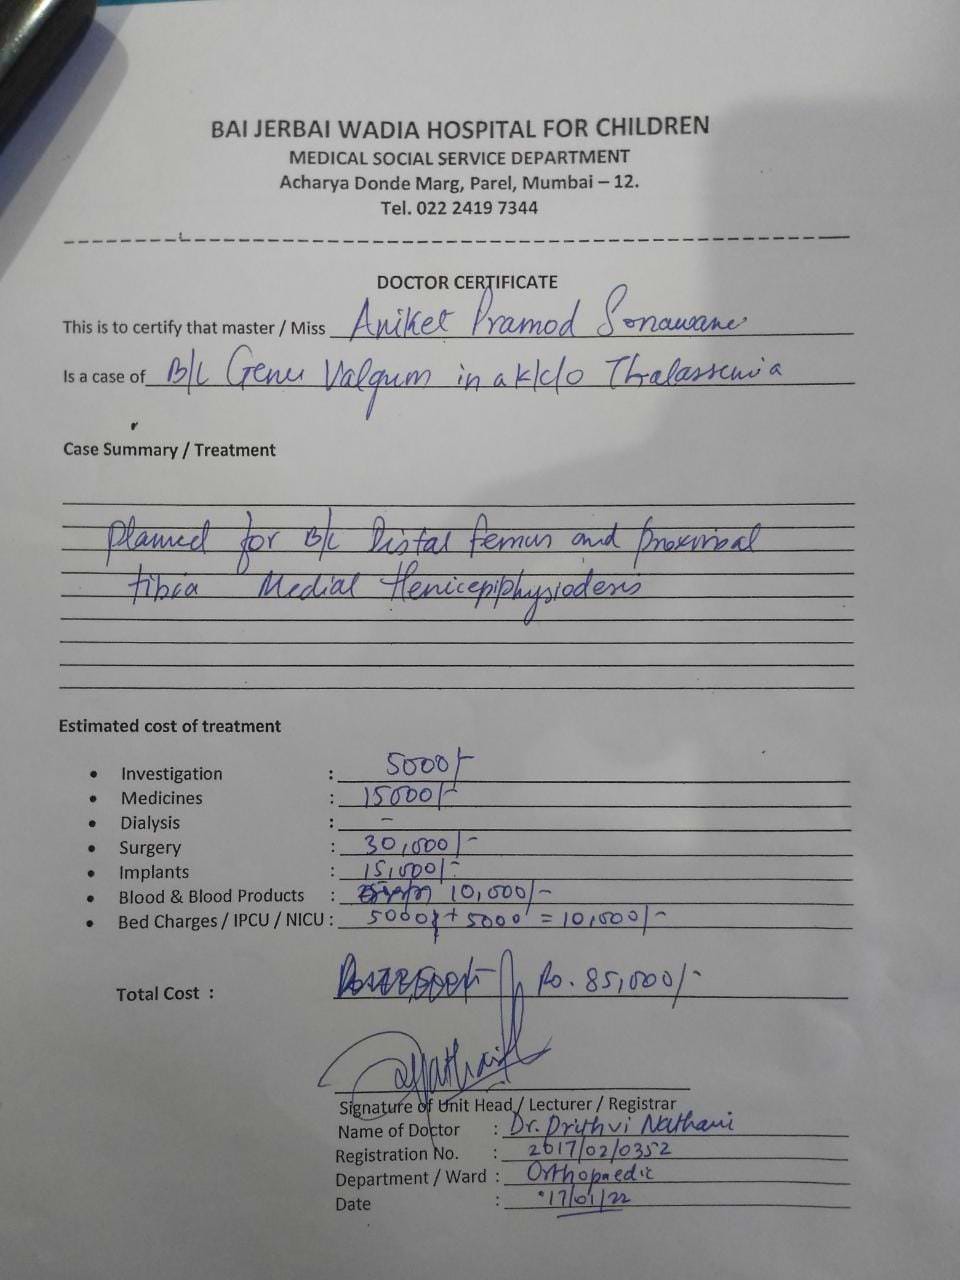 BAI JERBAI WADIA HOSPITAL FOR CHILDREN
MEDICAL SOCIAL SERVICE DEPARTMENT
Acharya Donde Marg, Parel, Mumbai – 12.
Tel. 022 2419 7344
DOCTOR CERTIFICATE
This is to certify that master / Miss Aniket Pramod Sonawane
Is a case of B/L Genu Valgum in a k/c/o Thalassemia
Case Summary / Treatment
Planned for B/L Distal femur and proximal
tibia Medial Hemiepiphysiodesis
Estimated cost of treatment
• Investigation : 5000/-
• Medicines : 15000/-
• Dialysis : -
• Surgery : 30,000/-
• Implants : 15,000/-
• Blood & Blood Products : 10,000/-
• Bed Charges / IPCU / NICU : 5000 + 5000 = 10,000/-
Total Cost : Rs. 85,000/-
Signature of Unit Head / Lecturer / Registrar
Name of Doctor : Dr. Prithvi Nathani
Registration No. : 2017/02/0352
Department / Ward : Orthopaedic
Date : 17/01/22